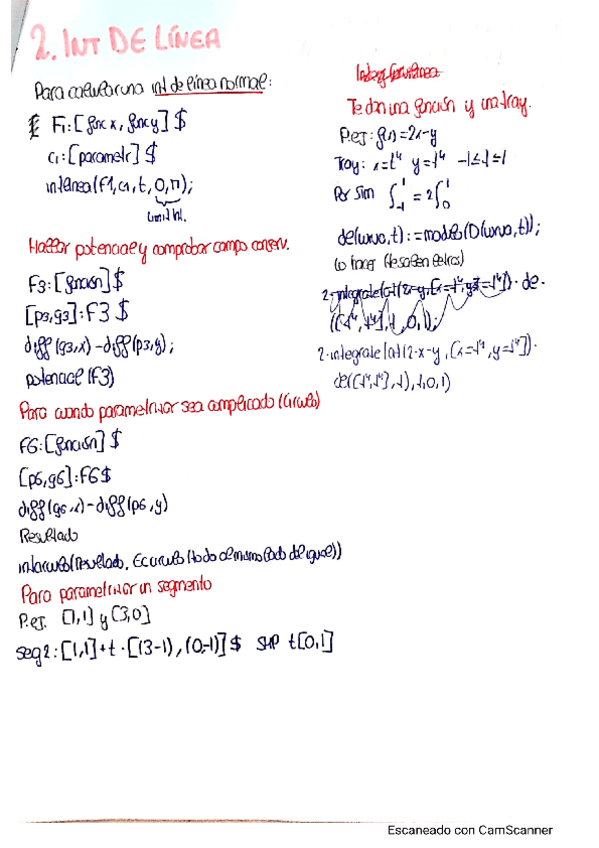 2. INT DE LÍNEA
Para calcular una int de línea normal:
F1:[func x, func y] $
C1:[parametr] $
intlinea(F1, C1, t, 0, π);
Limit Int.
Hallar potencial y comprobar campo conserv.
F3:[función] $
[p3,g3]:F3 $
diff(g3,x)-diff(p3,y);
potencial(F3)
Para cuando parametrizar sea complicado (Círculo)
F6:[función] $
[p6,g6]:F6 $
diff(g6,x)-diff(p6,y)
Resultado
intcirculo(Resultado, Ec circulo (todo al mismo lado del igual))
Para parametrizar un segmento
P.ej. [1,1] y [3,0]
seg2:[1,1]+t·[(3-1),(0-1)] $ SIMP t[0,1]
Te dan una función y una tray.
P.ej: f(x)=2x-y
Tray: x=t⁴ y=t⁴ -1≤t≤1
Por Sim ∫₋₁¹ = 2∫₀¹
de(curva,t):=modulo(D(curva,t));
2·integrate(at(2·x-y,[x=t⁴,y=t⁴])·
de([t⁴,t⁴],t),t,0,1)
Escaneado con CamScanner